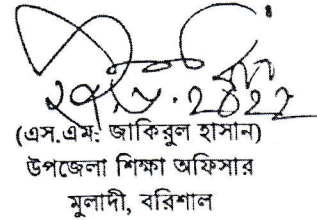 (এস.এম. জাকিরুল হাসান)
উপজেলা শিক্ষা অফিসার
মুলাদী, বরিশাল